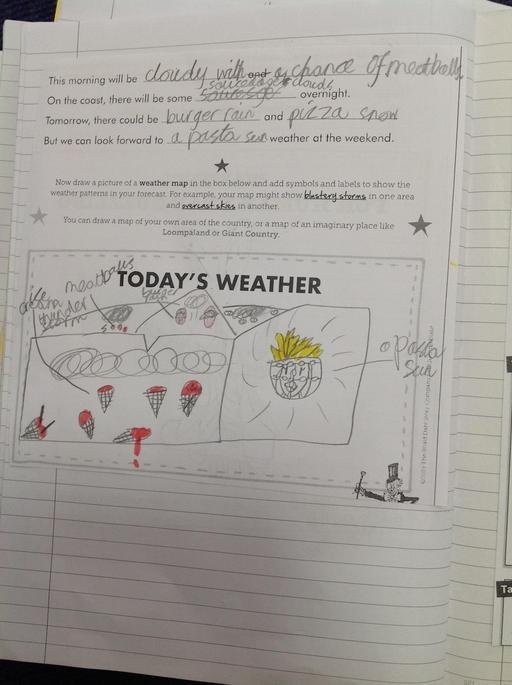 This morning will be cloudy with and a chance of meatballs
sausage clouds
On the coast, there will be some overnight.
Tomorrow, there could be burger rain and pizza snow
But we can look forward to a pasta sun weather at the weekend.
Now draw a picture of a weather map in the box below and add symbols and labels to show the
weather patterns in your forecast. For example, your map might show blustery storms in one area
and overcast skies in another.
You can draw a map of your own area of the country, or a map of an imaginary place like
Loompaland or Giant Country.
TODAY'S WEATHER
meatballs
burger
rain
ice
cream
thunder
storm
pasta
sun
Ta